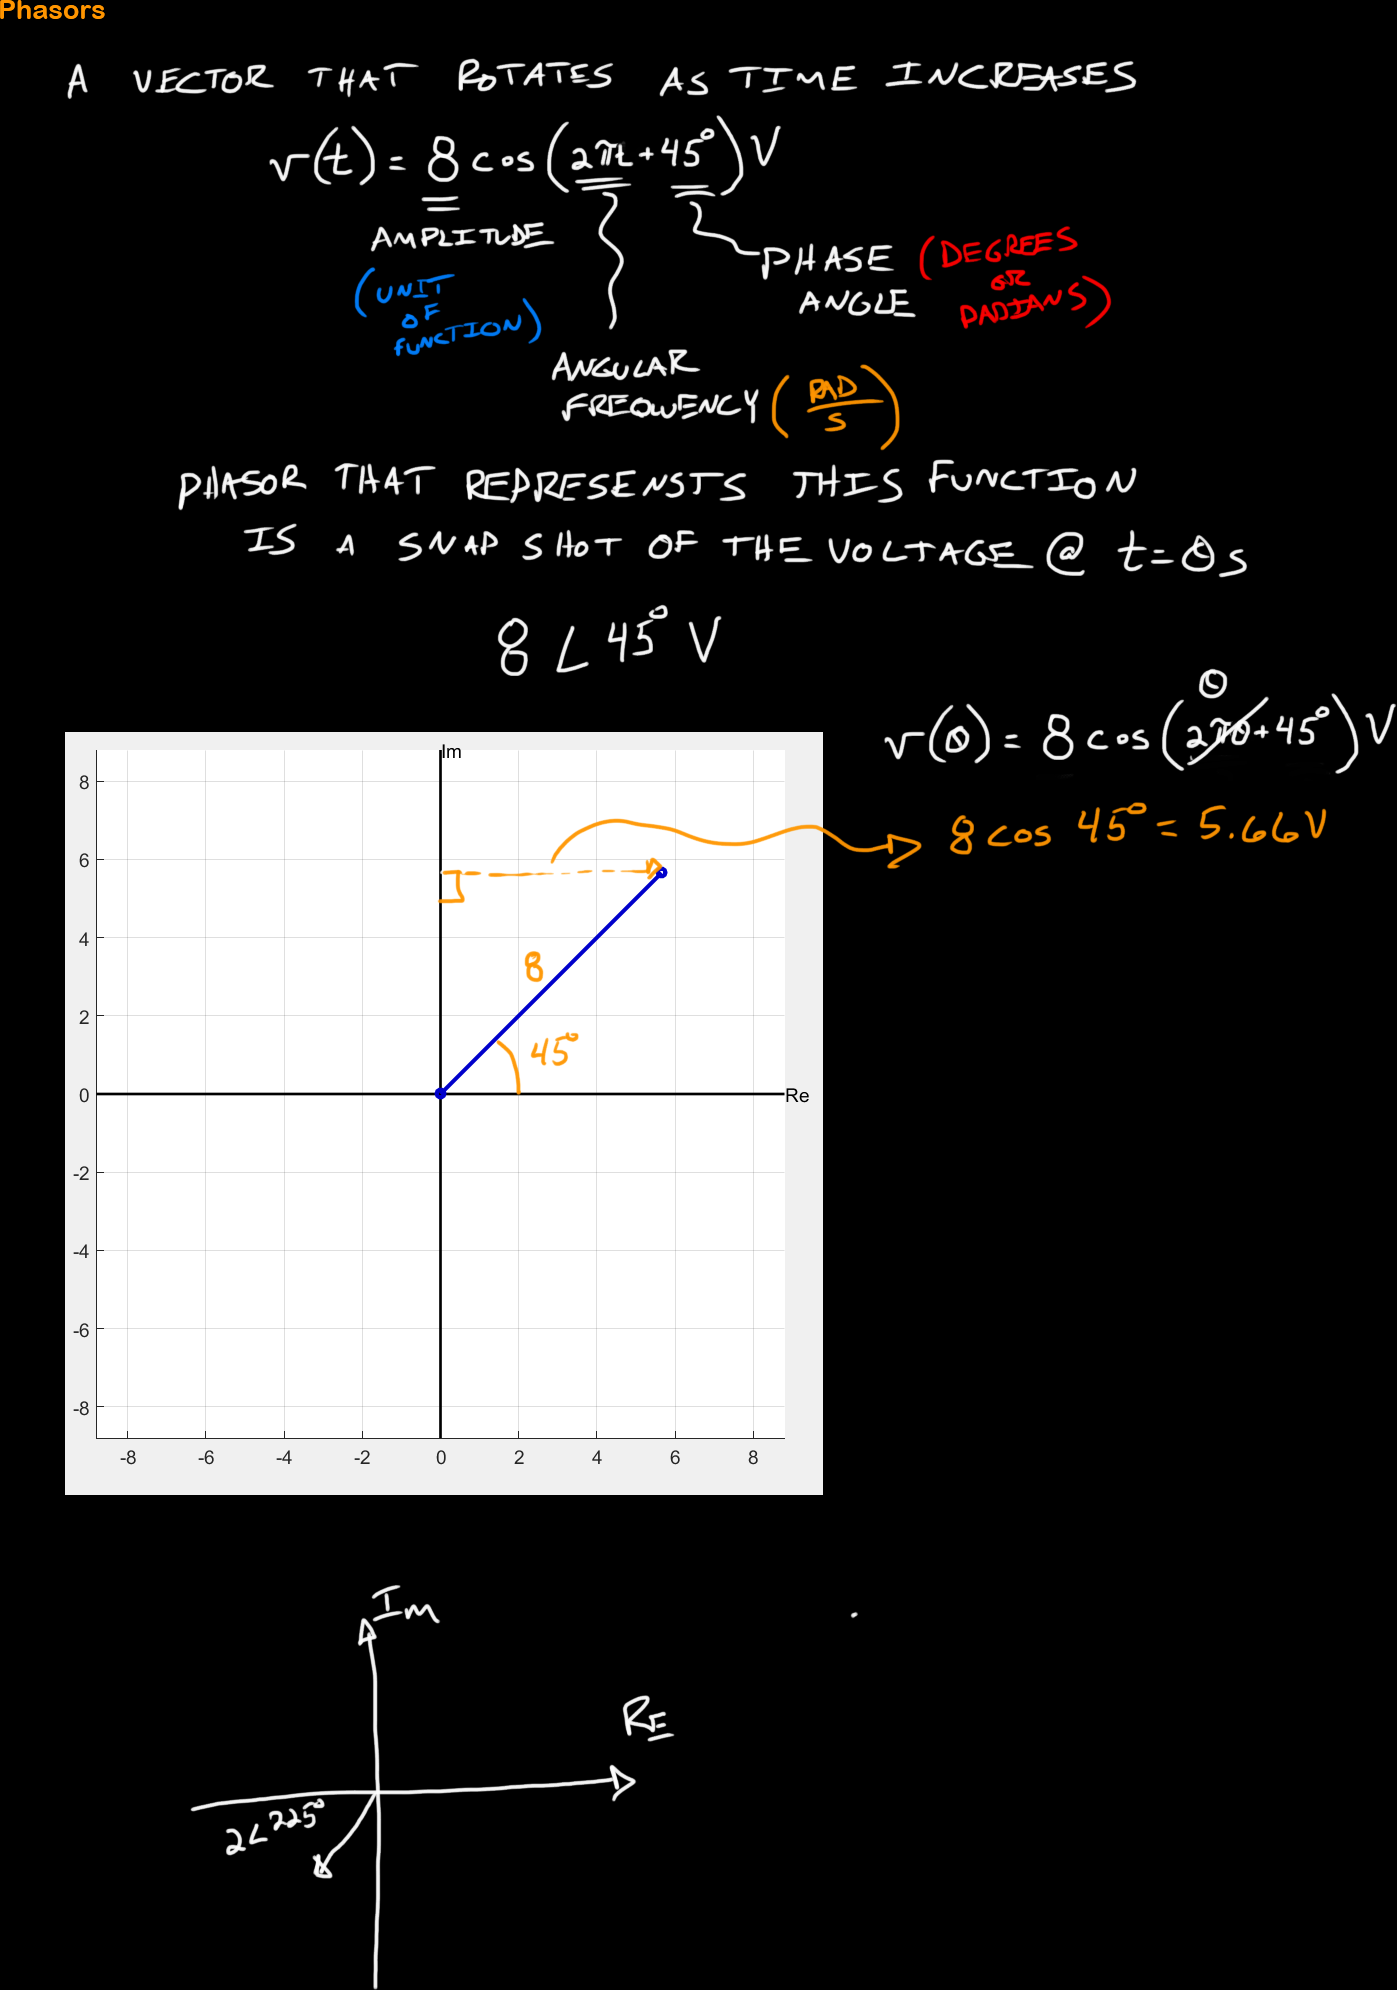 Phasors
A VECTOR THAT ROTATES AS TIME INCREASES
v(t) = 8 cos(2πt + 45°) V
AMPLITUDE
(UNIT OF FUNCTION)
PHASE ANGLE
(DEGREES OR RADIANS)
ANGULAR FREQUENCY (RAD/S)
PHASOR THAT REPRESENSTS THIS FUNCTION
IS A SNAP SHOT OF THE VOLTAGE @ t=0s
8 ∠ 45° V
0
v(0) = 8 cos(2π0 + 45°) V
8 cos 45° = 5.66V
Im
8
6
4
2
0
-2
-4
-6
-8
8
45°
Re
-8 -6 -4 -2 0 2 4 6 8
Im
RE
2∠225°